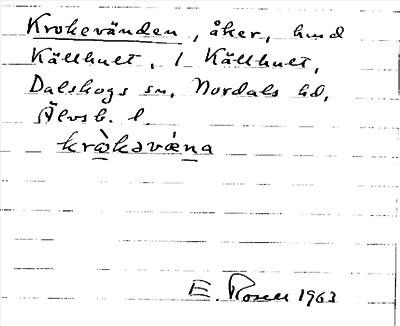 Krokevänden, åker, hmd
Källhult, 1 Källhult,
Dalskogs sn, Nordals hd,
Älvsb. l.
kròkəvǽna
E. Rosell 1963